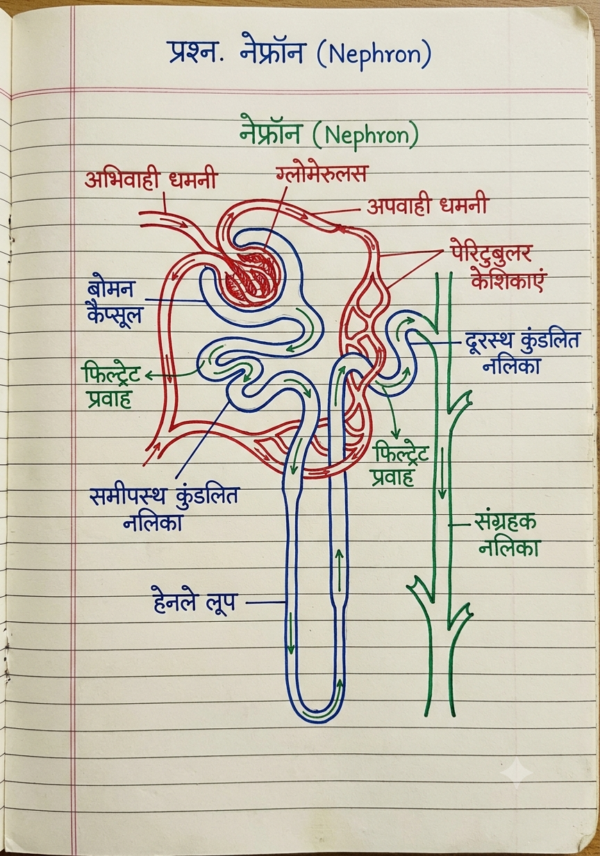 प्रश्न. नेफ्रॉन (Nephron)
नेफ्रॉन (Nephron)
अभिवाही धमनी
ग्लोमेरुलस
अपवाही धमनी
पेरिटुबुलर
केशिकाएं
बोमन
कैप्सूल
दूरस्थ कुंडलित
नलिका
फिल्ट्रेट
प्रवाह
फिल्ट्रेट
प्रवाह
समीपस्थ कुंडलित
नलिका
संग्रहक
नलिका
हेनले लूप